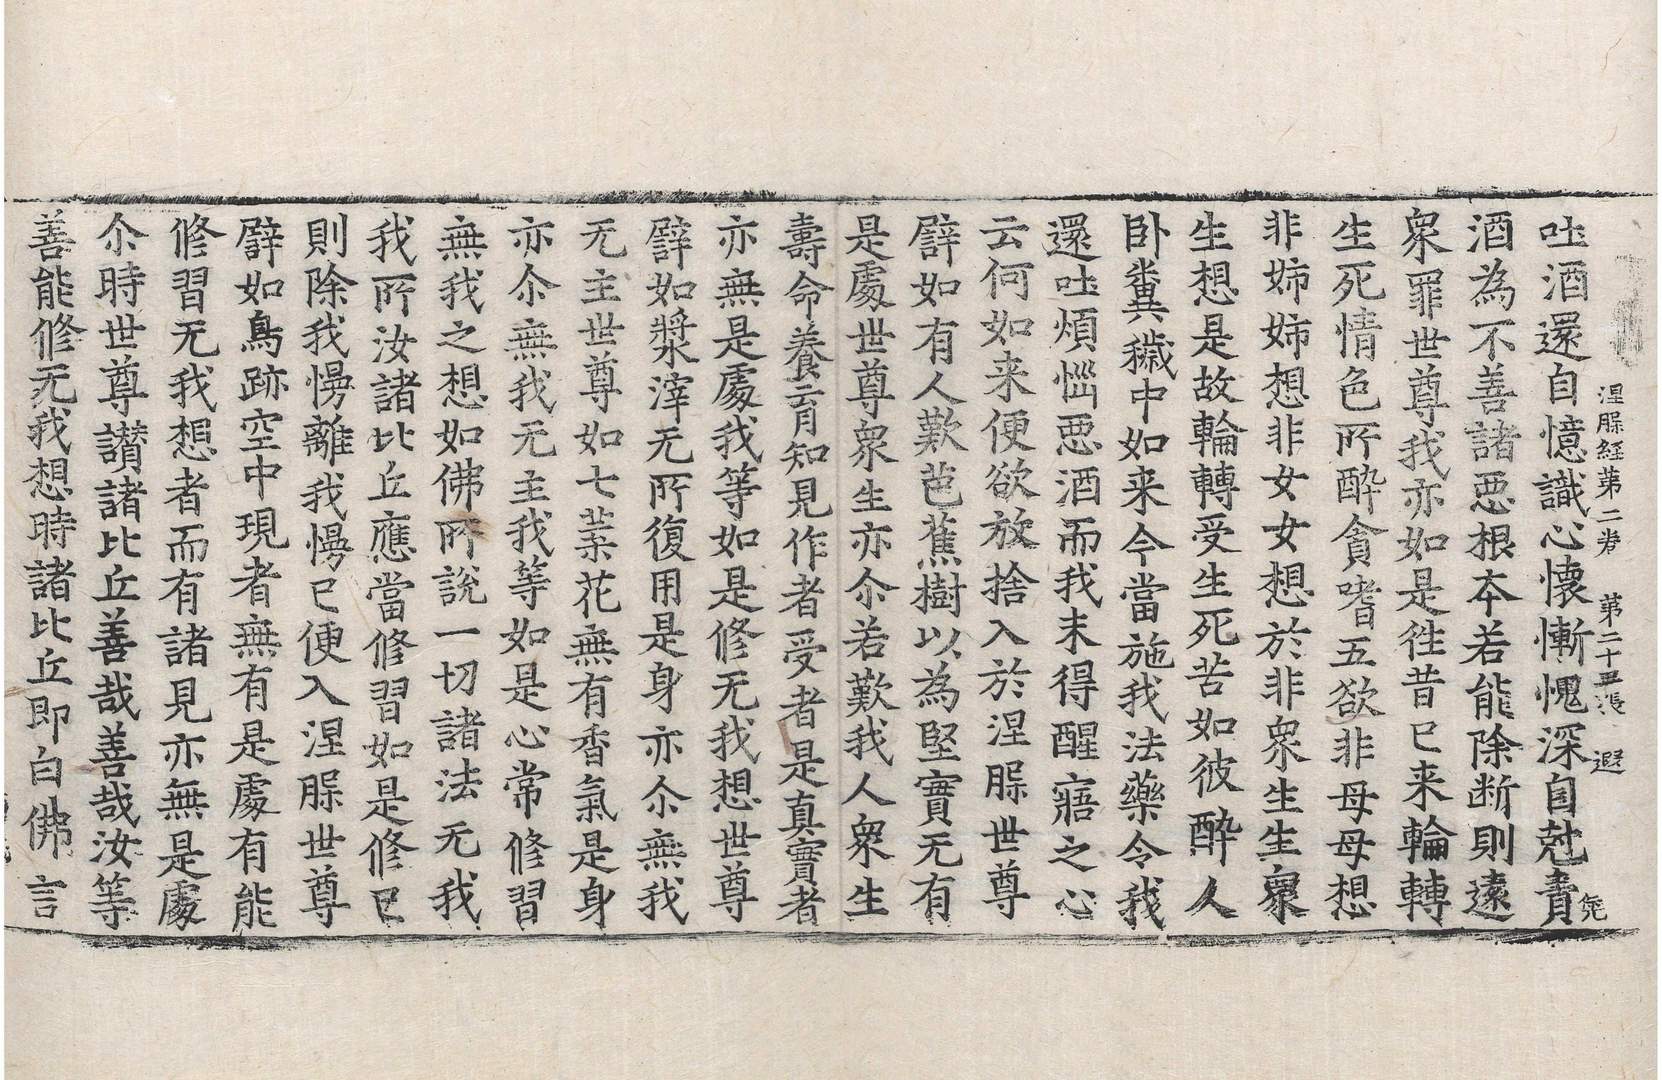 涅槃経苐二卷　苐二十五張　遐
吐酒還自憶識心懷慚愧深自尅責
酒為不善諸惡根夲若能除断則遠
衆罪世尊我亦如是徃昔已来輪轉
生死情色所醉貪嗜五欲非母母想
非姉姉想非女女想於非衆生生衆
生想是故輪轉受生死苦如彼醉人
卧糞穢中如来今當施我法藥令我
還吐煩惱惡酒而我未得醒寤之心
云何如来便欲放捨入於涅槃世尊
譬如有人歎芭蕉樹以為堅實无有
是處世尊衆生亦尒若歎我人衆生
壽命養育知見作者受者是真實者
亦無是處我等如是修无我想世尊
譬如漿滓无所復用是身亦尒無我
无主世尊如七葉花無有香氣是身
亦尒無我无主我等如是心常修習
無我之想如佛所說一切諸法无我
我所汝諸比丘應當修習如是修已
則除我慢離我慢已便入涅槃世尊
譬如鳥跡空中現者無有是處有能
修習无我想者而有諸見亦無是處
尒時世尊讃諸比丘善哉善哉汝等
善能修无我想時諸比丘即白佛言